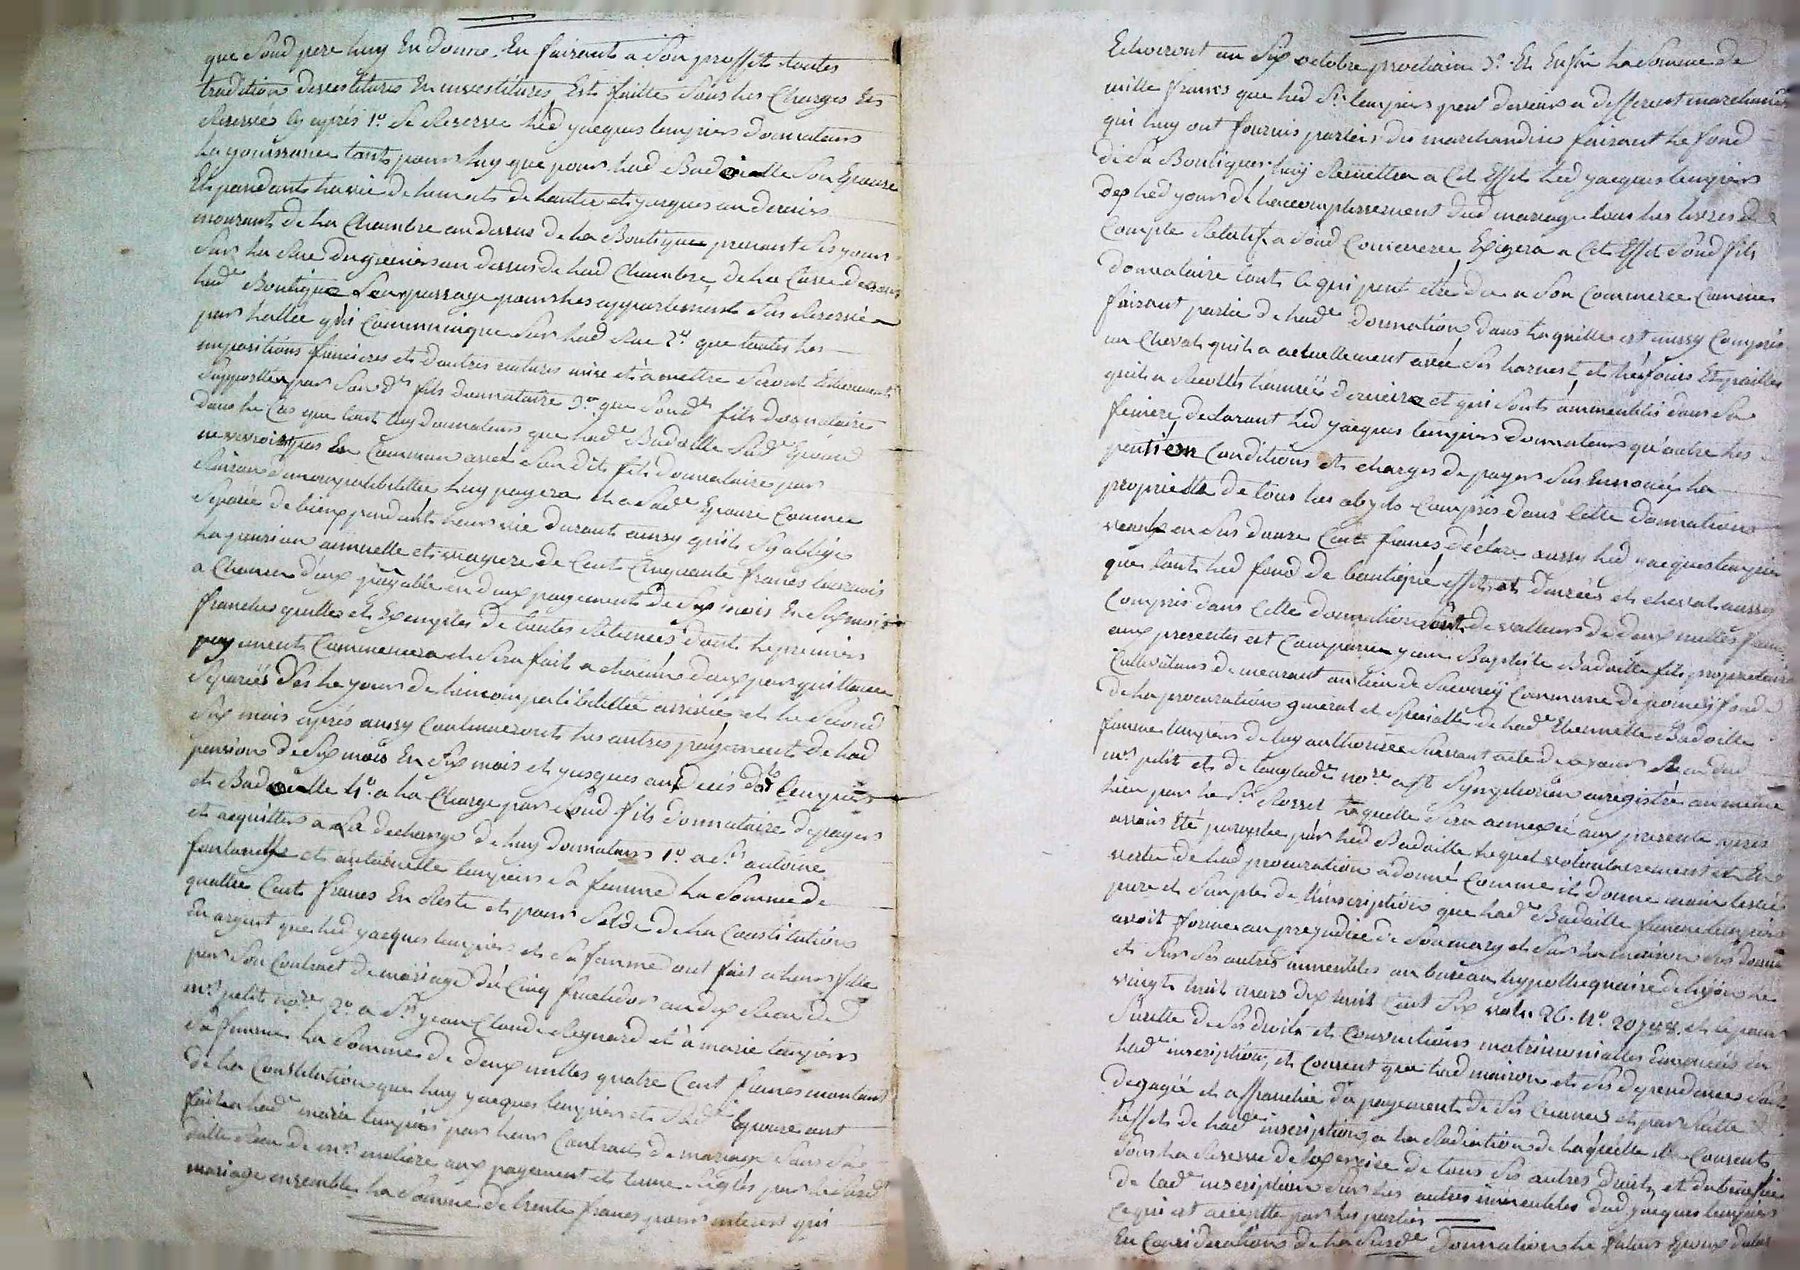 que Soud pere luy En donne En faisant a Son proffit toutes
tradition devestitures En investitures Est faitte Sous les Charges Et
Reserves cy après 1° Se Reserve led jacques tempiers donnateurs
la jouissance tant pour luy que pour lad Badoaille Son Epouse
Et pendant la vie de lun et de lautre et jusques au dernier
mourant de la Chambre au dessus de la Boutique prenant Ses jours
Sur la Rue du grenier au dessus de lad Chambre, de la Cave dessous
lad Boutique Leur passage pour les appartements Sus Reservé
par lallée qui Communique Sur lad Rue 2° que toutes les
impositions foncieres et dautres natures mise et à mettre Seront
Supportées par Son dt fils donnataire 3° que Soud fils donnataire
dans le Cas que tant luy donnateur que lade Badaille Sade Epouse
ne vivroit pas En Commun avec Son dit fils donnataire par
Raison dincompatibilitée luy payera et a Sade Epouse Comme
Separée de biens pendant leur vie durant aussy quil Soblige
la pension annuelle et viagere de Cent Cinquante francs
a Chacun deux payable en deux payements de Six mois En Six mois
franches quittes et Exemptes de toutes Retenues dont le premier
payement Commencera et Sera fait a chacun deux par quittance
Separées dès le jour de lincompatibilittée arrivée et le Second
Six mois après aussy Continueront les autres payement de lad
pension de Six mois En Six mois et jusques aux decès tempier
et Badoaille 4° a la Charge par Soud fils donnataire de payer
et acquitter a La decharge de luy donnateur 1° a Sr antoine
et antoinette tempiers Sa femme la Somme de
quattre Cent francs En Reste et pour Solde de la Constitution
En argent que led jacques tempiers et Sa femme ont fait a leur fille
par Son Contract de mariage du Cinq fructidor an dix Reçu de
mr petit nore 2° a Sr jean Claude Regnard et à marie tempiers
Sa femme la Somme de deux milles quatre Cent francs montant
de la Constitution que luy jacques tempiers et Sade Epouse ont
fait a lade marie tempiers par leur Contract de mariage
datte Reçu de mr moliere aux payement et terme reglés par
mariage ensemble la Somme de trente francs pour interet qui
Echoiront au Six octobre prochain 3° Et Enfin la Somme de
mille francs que led Sr tempiers peut devoir a different marchands
qui luy ont fournis partie des marchandise faisant le fond
de Sa Boutique luy Remettra a Cet Effet led jacques tempiers
des led jour de laccomplissement dud mariage tous les livres de
Compte Relatif a Soud Commerce Exigera a Cet Effet Soud fils
donnataire tout ce qui peut etre du a Son Commerce Comme
faisant partie de lade donnation, dans laquelle est aussy Compris
un Cheval quil a actuellement avec Ses harnest, et les foins Et pailles
quil a Recoltés lannée derniere et qui Sont dans Sa
feniere, declarant led jacques tempiers donnateurs quoutre les
Conditions et charges de payer Sus Enoncé, la
proprietté de tous les objets Compris dans Cette donnation
vaut en Sus douze Cent francs, déclare aussy led jacques tempier
que tant led fond de boutique effets et denrées et cheval aussy
Compris dans Cette donnation Sont de valleur de deux milles francs
aux presentes est Comparu jean Baptiste Badaille fils propriétaire
Cultivateur demeurant au lieu de Commune de fondé
de la procuration general et Specialle de lade Etiennette Badaille
femme tempiers de luy authorisée Suivant acte
mr petit et de nore a St Symphorien enregistré au meme
lieu par le Sr Rosset laquelle Sera annexée aux presente apres
avoir Eté paraphée par led Badaille lequel volontairement et En
vertu de lad procuration a donné Comme il donne main levée
pure et Simple de linscription que lade Badaille femme tempiers
avoit formé au prejudice de Son mary et Sur la maison
et Sur Ses autres immeubles au bureau hypothequaire de Lyon le
vingt huit mars dix huit Cent Six vol 26 n° 20788 et ce pour
Surette de Ses droits et Conventions matrimonialles Enoncés en
lade inscription, et Consent que lad maison et Ses dependances Soit
degagée et affranchie du payement de Ses Creances et par Suitte
leffet de lade inscription a la Radiation de laquelle il Consent,
Sous la Reserve de lexercice de tous Ses autres droits et du benefice
de lade inscription Sur les autres immeubles dud jacques tempiers
ce qui est accepté par les parties
En Consideration de la Susde donnation le futur Epoux